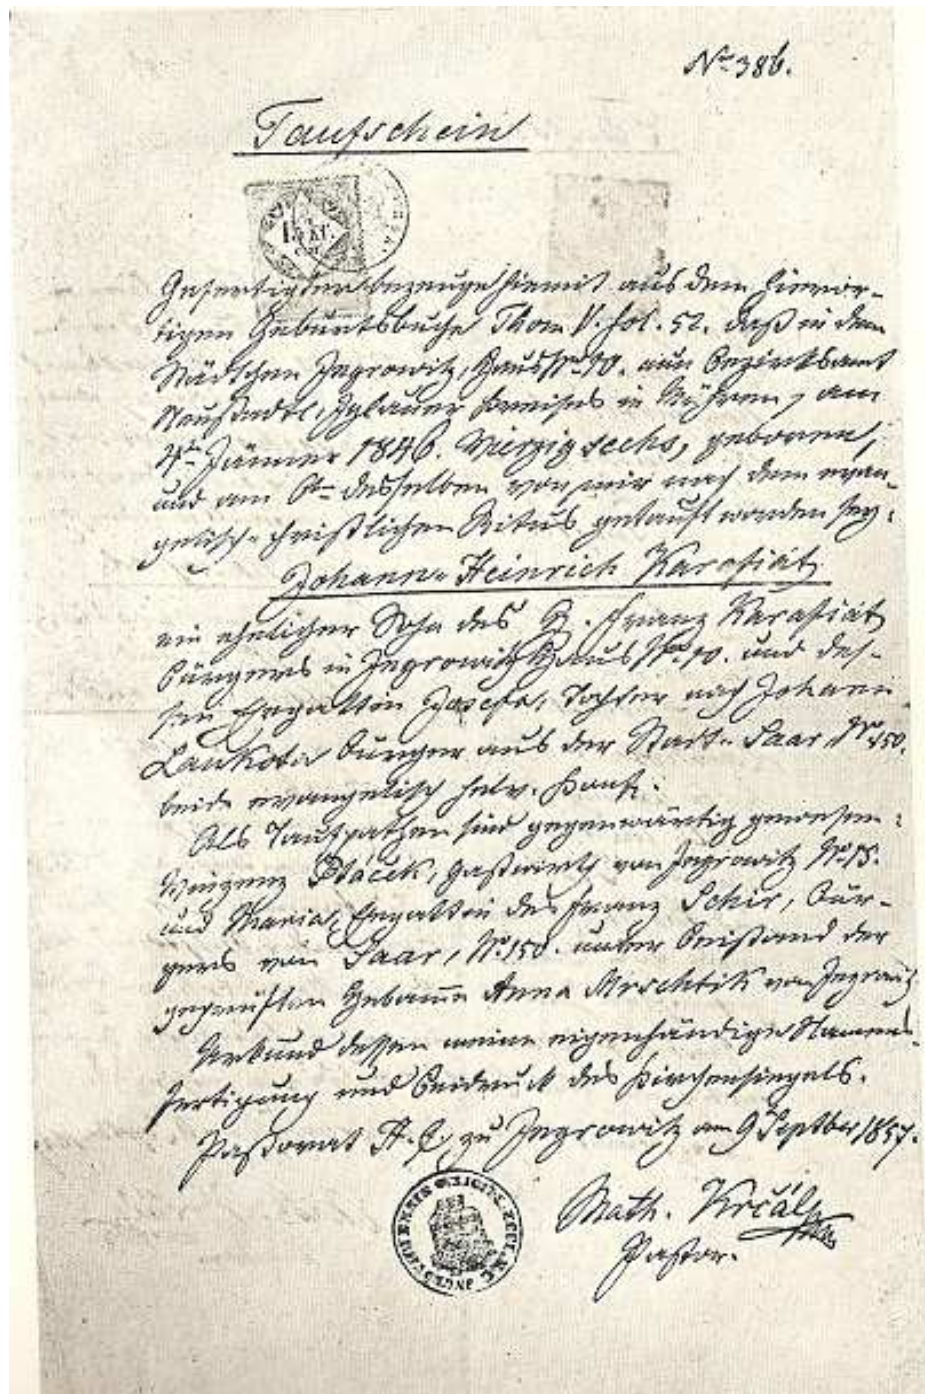 No 386.
Taufschein
15 kr.
Gefertigter bezeuge hiemit aus dem hieror-
tigen Geburtsbuche Thom V. fol. 52. daß in dem
Städtchen Ingrowitz, Haus No 10. im Bezirksamt
Neustadtl, Iglauer Kreises in Mähren, am
4ten Jänner 1846. Vierzig sechs, geboren,
und am 6ten desselben von mir nach dem evan-
gelisch-christlichen Ritus getauft worden sey:
Johann Heinrich Karafiát,
ein ehelicher Sohn des H. Franz Karafiát
Bürgers in Ingrowitz Haus No 10. und des-
sen Ehegattin Josefa, Tochter nach Johann
Laukota Bürger aus der Stadt Saar, No 150.
beide evangelisch helv. Konf.
Als Taufpathen sind gegenwärtig gewesen:
Winzenz Ptáček, Gastwirth von Ingrowitz No 15.
und Maria, Ehegattin des Franz Schir, Bür-
gers von Saar, No 150. unter Beistand der
geprüften Hebame Anna Mrschtik von Ingrowitz
Urkund dessen meine eigenhändige Namens-
fertigung und Beidruck des Kirchensiegels.
Pastorat H. C. zu Ingrowitz am 9 Septber 1857.
Math. Krčál
Pastor.